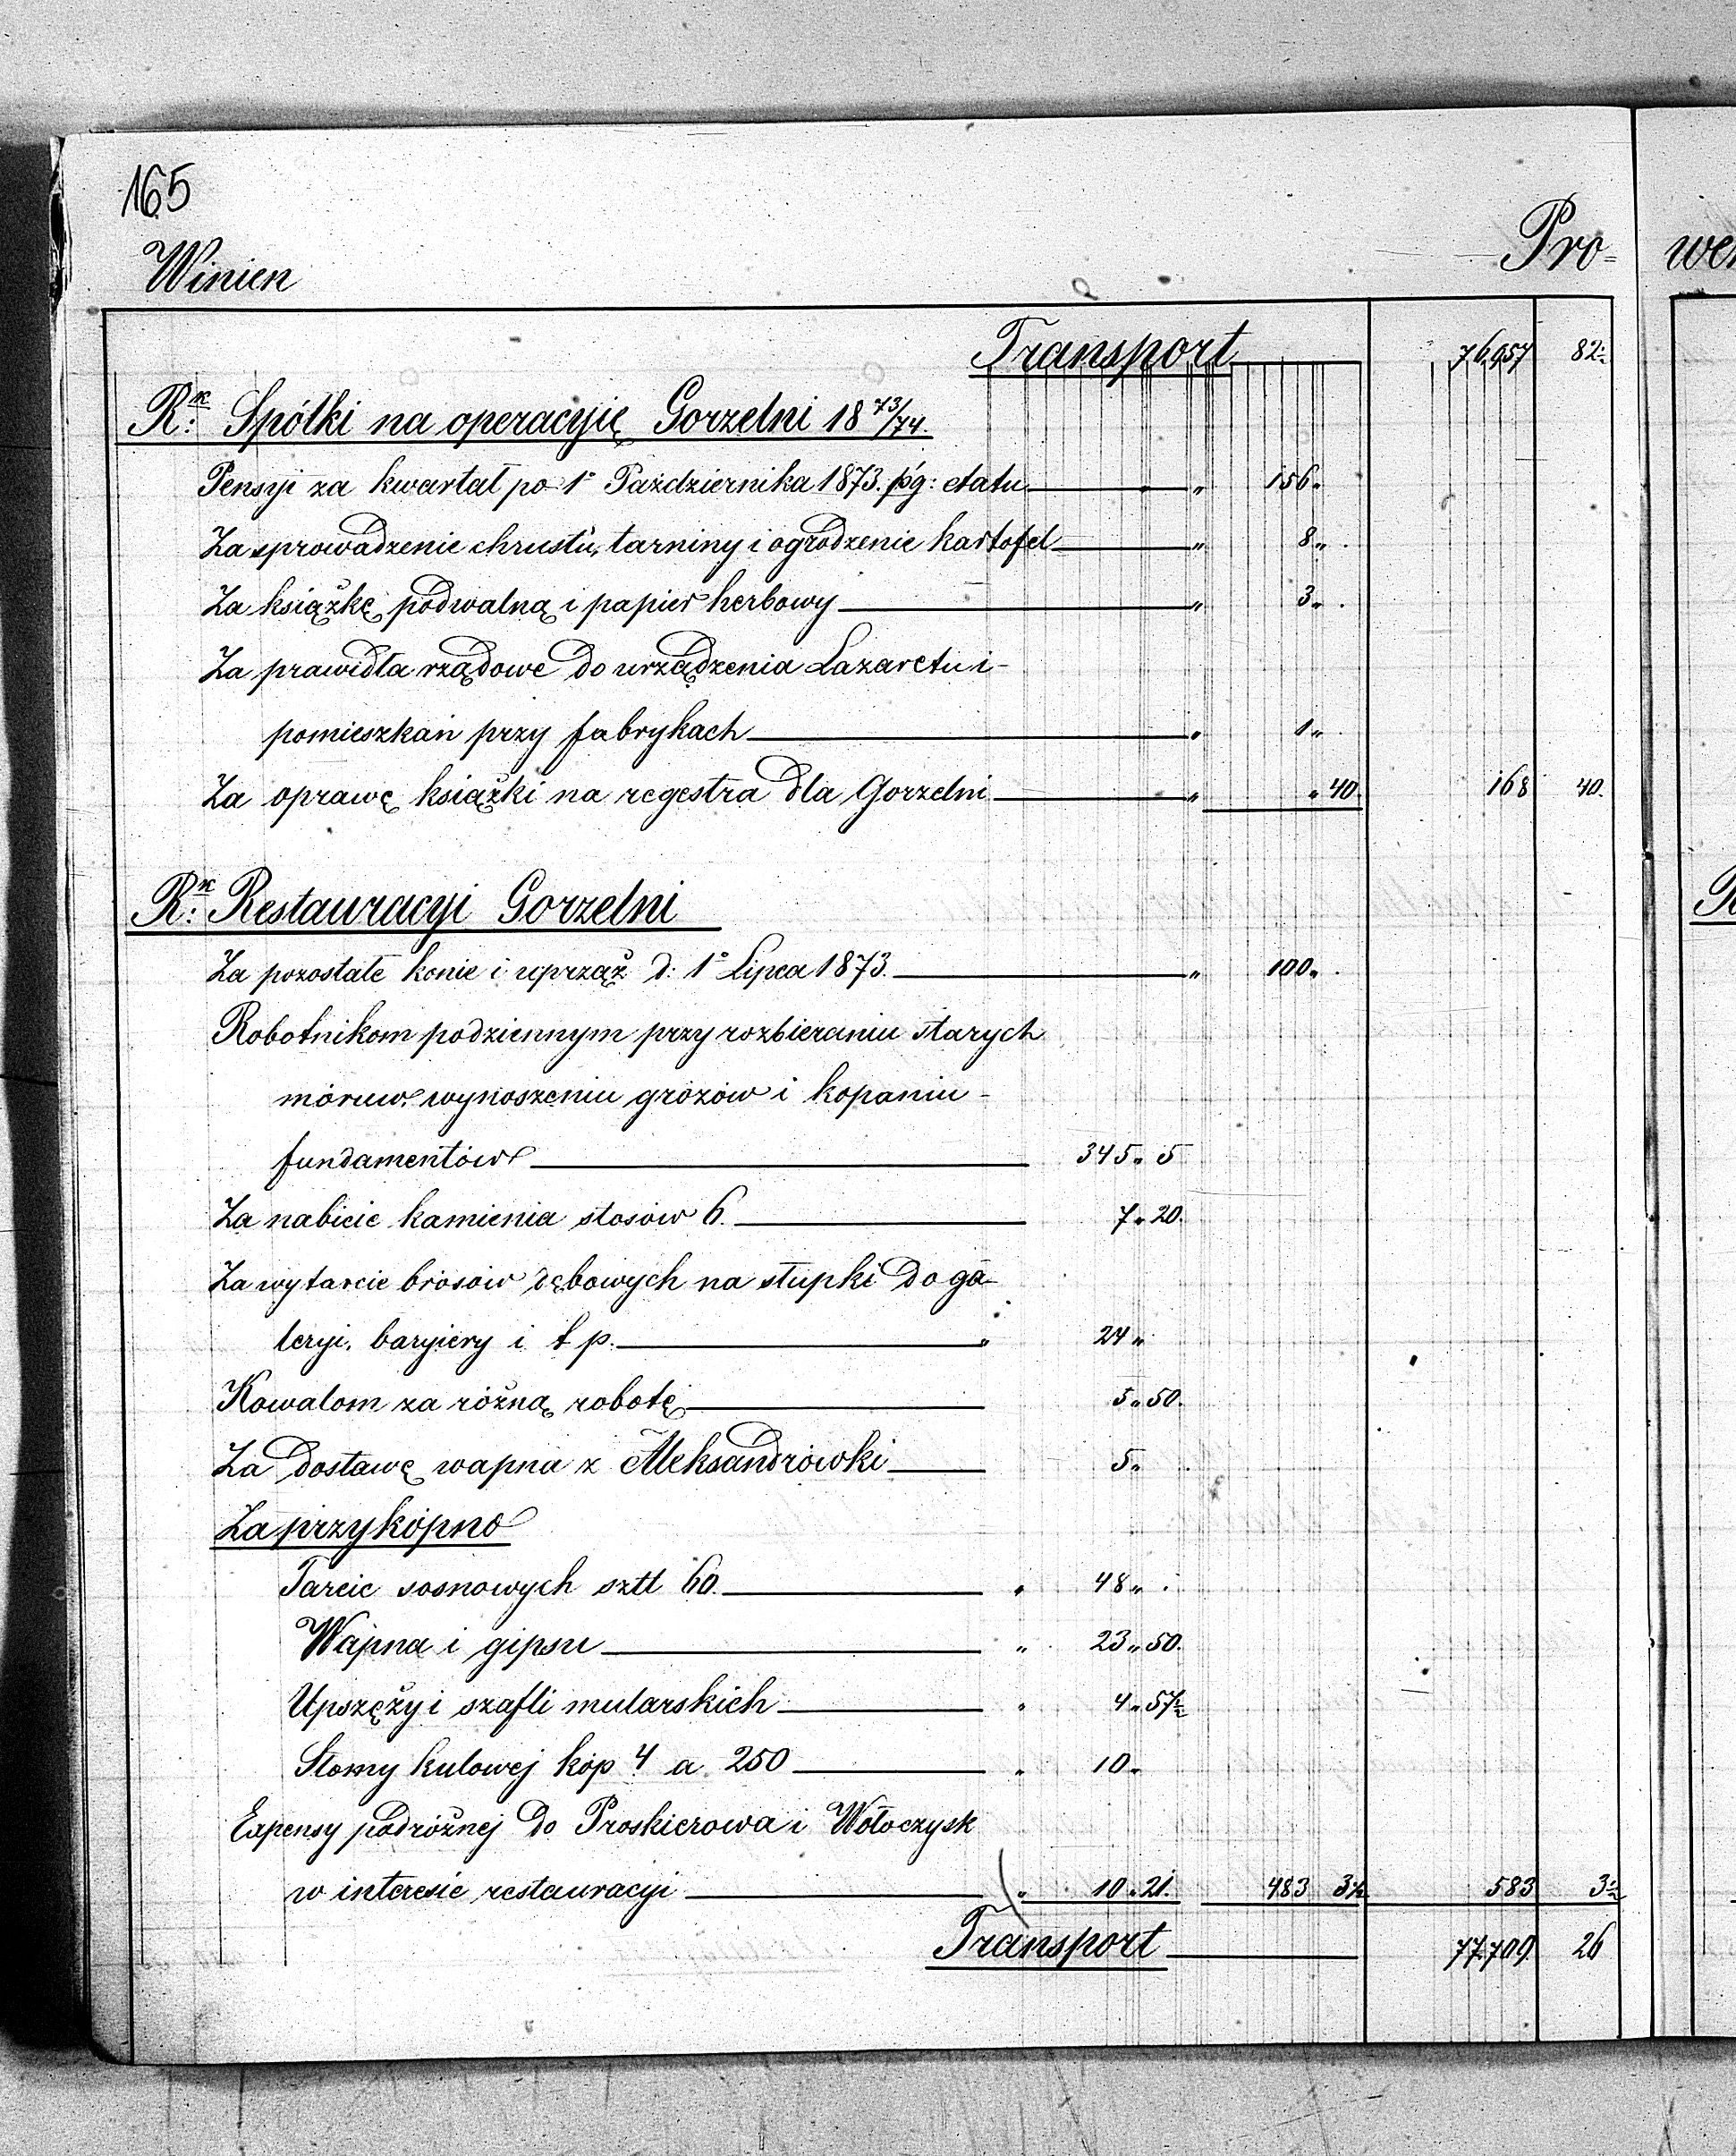 165
Winien
Pro=
wen
Transport 76,957 82½
Rk: Spółki na operacyię Gorzelni 18 73/74.
Pensyi za kwartał po 1° Października 1873. póg: etatu " 156 "
Za sprowadzenie chrustu, tarniny i ogrodzenie kartofel " 8 "
Za książkę podwalną i papier herbowy " 3 "
Za prawidła rządowe do urządzenia Lazaretu i-
pomieszkań przy fabrykach " 1 "
Za oprawę książki na regestra dla Gorzelni " " 40. 168 40.
Rk: Restauracyi Gorzelni
Za pozostałe konie i uprząż d: 1° Lipca 1873. " 100 "
Robotnikom podziennym przy rozbieraniu starych
móruw, wynoszeniu grozów i kopaniu -
fundamentów 345 " 5
Za nabicie kamienia stosów 6. 7 " 20.
Za wytarcie brósów dębowych na słupki do ga-
leryi, baryiery i t p. " 24 "
Kowalom za różną robotę 5 " 50.
Za dostawę wapna z Aleksandrówki 5 "
Za przykópno
Tarcic sosnowych sztt 60. " 48 "
Wapna i gipsu " 23 " 50.
Upszęży i szafli mularskich " 4 " 57½
Słomy kulowej kóp 4 a 250 " 10 "
Expensy podróżnej do Proskierowa i Wołoczysk
w interesie restauracyi " 10 " 21. 483 3½ 583 3½
Transport 77,709 26